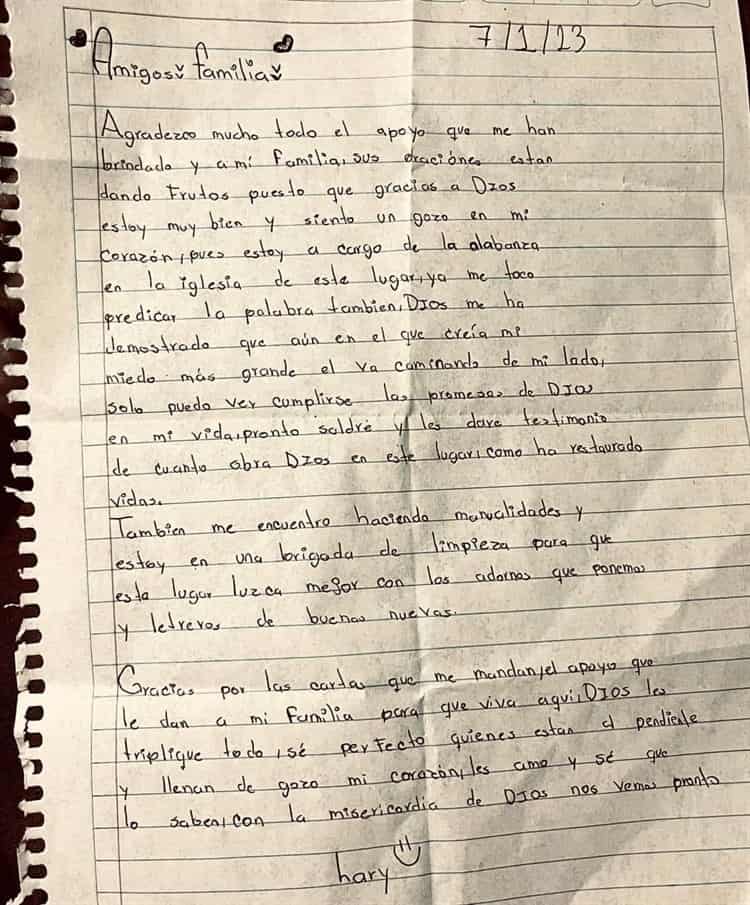 7/1/23
Amigos familia
Agradezco mucho todo el apoyo que me han
brindado y a mi familia, sus oraciónes estan
dando Frutos puesto que gracias a DIos
estoy muy bien y siento un gozo en mi
corazón, pues estoy a cargo de la alabanza
en la iglesia de este lugar, ya me toco
predicar la palabra tambien, DIos me ha
demostrado que aún en el que creía mi
miedo más grande el va caminando de mi lado,
solo puedo ver cumplirse las promesas de DIos
en mi vida, pronto saldré y les dare testimonio
de cuanto obra DIos en este lugar, como ha restaurado
vidas.
Tambien me encuentro haciendo manualidades y
estoy en una brigada de limpieza para que
este lugar luzca mejor con los adornos que ponemos
y letreros de buenas nuevas.
Gracias por las cartas que me mandan, el apoyo que
le dan a mi familia para que viva aqui, DIos les
triplique todo, sé perfecto quienes estan al pendiente
y llenan de gozo mi corazón, les amo y sé que
lo saben, con la misericordia de DIos nos vemos pronto
hary